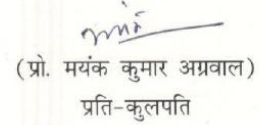 (प्रो. मयंक कुमार अग्रवाल)
प्रति-कुलपति